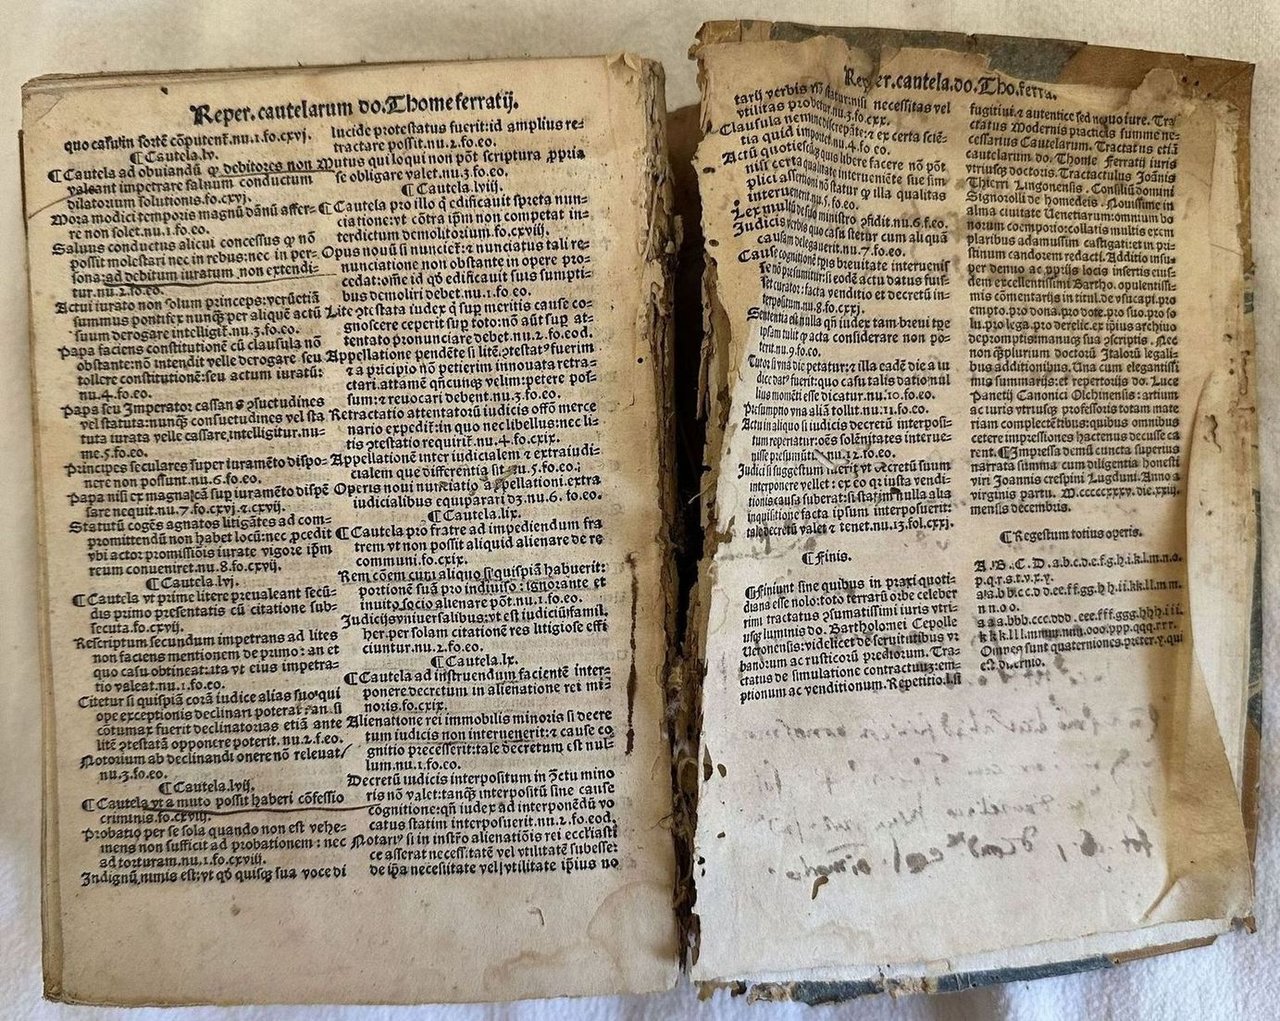 Reper. cautelarum do. Thome ferratij.
quo casu in sortē cōputent̄. nu. 1. fo. cxvj.
¶ Cautela. lv.
¶ Cautela ad obuiandū debitores non
valeant impetrare saluum conductum
dilatorium solutionis. fo. cxvj.
Mora modici temporis magnū dānū affer-
re non solet. nu. 1. fo. eo.
Saluus conductus alicui concessus non
possit molestari nec in rebus: nec in per-
sona: ad debitum iuratum non extendi-
tur. nu. 2. fo. eo.
Actui iurato non solum princeps: verūetiā
summus pontifex per aliquē actū
suum derogare intelligit̄. nu. 3. fo. eo.
Papa faciens constitutionē cū clausula nō
obstante: nō intendit velle derogare seu
tollere constitutionē: seu actum iuratū:
nu. 4. fo. eo.
Papa seu Imperator cassans
vel statuta: consuetudines vel sta
tuta iurata velle cassare intelligitur. nu-
me. 5. fo. eo.
Principes seculares super iuramēto dispo-
nere non possunt. nu. 6. fo. eo.
Papa nisi ex magna cā sup iuramēto dispē
sare nequit. nu. 7. fo. cxvj. & cxvij.
Statutū cogēs agnatos litigātes ad com-
promittendū non habet locū: nec
vbi actor promissiōis iurate vigore
reum conueniret. nu. 8. fo. cxvij.
¶ Cautela. lvj.
¶ Cautela vt prime litere preualeant secū-
dis primo presentatis cū citatione sub-
secuta. fo. cxvij.
Rescriptum secundum impetrans ad lites
non faciens mentionem de primo: an et
quo casu obtineat: ita vt eius impetra-
tio valeat. nu. 1. fo. eo.
Citetur si quispiā corā iudice alias suo: qui
ope exceptionis declinari poterat: an si
cōtumax fuerit declinatorias etiā ante
litē opponere poterit. nu. 2. f. eo.
Notorium ab declinandi onere nō releuat
nu. 3. fo. eo.
¶ Cautela. lvij.
¶ Cautela vt a muto possit haberi cōfessio
criminis. fo. cxviij.
Probatio per se sola quando non est vehe-
mens non sufficit ad probationem: nec
ad torturam. nu. 1. fo. cxviij.
Indignū nimis est: vt sua voce di
lucide protestatus fuerit: id amplius re-
tractare possit. nu. 2. fo. eo.
Mutus qui loqui non pōt scriptura
se obligare valet. nu. 3. fo. eo.
¶ Cautela. lviij.
¶ Cautela pro illo edificauit spreta nun-
ciatione: vt cōtra non competat in-
terdictum demolitorium. fo. cxviij.
Opus nouū si nunciet̄: & nunciatus tali re-
nunciatione non obstante in opere pro-
cedat: offie id edificauit suis sumpti-
bus demoliri debet. nu. 1. fo. eo.
Lite iudex sup meritis cause co-
gnoscere ceperit sup toto: nō aūt sup at-
tentato pronunciare debet. nu. 2. fo. eod.
Appellatione pendēte si litē fuerim
& a principio nō petierim innouata retra-
ctari: attamē velim: petere pos-
sum: & reuocari debent. nu. 3. fo. eo.
Retractatio attentatorū iudicis offō merce
nario expedit̄: in quo nec libellus: nec li-
tis requirit̄. nu. 4. fo. cxix.
Appellationē inter iudicialem & extraiudi-
cialem que differentia sit. nu. 5. fo. eo.
Operis noui nunciatio appellationi extra
iudicialibus equiparari. nu. 6. fo. eo.
¶ Cautela. lix.
¶ Cautela pro fratre ad impediendum fra
trem vt non possit aliquid alienare de re
communi. fo. cxix.
Rem cōem cum aliquo si quispiā habuerit:
portionē suā pro indiuiso: ignorante et
inuito socio alienare pōt. nu. 1. fo. eo.
Judicijs vniuersalibus: vt est iudiciū famil.
her. per solam citationē res litigiose effi
ciuntur. nu. 2. fo. eo.
¶ Cautela. lx.
¶ Cautela ad instruendum facientē inter-
ponere decretum in alienatione rei mi-
noris. fo. cxix.
Alienatione rei immobilis minoris si decre
tum iudicis non interuenerit: & cause co
gnitio precesserit: tale decretum est nul-
lum. nu. 1. fo. eo.
Decretū iudicis interpositum in mino
ris nō valet: interpositū sine cause
cognitione: iudex ad interponēdū vo
catus statim interposuerit. nu. 2. fo. eod.
si in alienatiōis rei ecclīasti
ce asserat necessitatē vel vtilitatē subesse:
de ipa necessitate vel vtilitate ipius no
Reper. cautela. do. Tho. ferra.
tarij verbis statur: nisi necessitas vel
vtilitas nu. 3. fo. cxx.
Clausula & ex certa sciē-
tia quid nu. 4. fo. eo.
libere facere nō pōt
nisi certa qualitate interueniēte sue sim
plici assertioni illa qualitas
interuenerit. nu. 5. fo. eo.
Lex ministro nu. 6. f. eo.
Judicis verbis quo casu stetur cum aliquā
causam delegauerit. nu. 7. fo. eo.
Cause cognitionē breuitate interuenis
se nō presumitur: si eodē actu datus fuis-
set curator: facta venditio et decretū in-
terpositum. nu. 8. fo. cxxj.
Sententia est nulla iudex tam breui
ipsam tulit acta considerare non po-
terit. nu. 9. fo. eo.
Tutor si vna die petatur: & illa eadē die a iu
dice fuerit: quo casu talis datio nul
lius momēti esse dicatur. nu. 10. fo. eo.
Presumptio vna aliā tollit. nu. 11. fo. eo.
Actu in aliquo si iudicis decretū interposi-
tum reperiatur: oēs solēnitates interue-
nisse presumūt̄. nu. 12. fo. eo.
Judici si suggestum fuerit vt decretū suum
interponere vellet: ex eo iusta vendi-
tionis causa suberat: si statim nulla alia
inquisitione facta ipsum interposuerit:
tale decretū valet & tenet. nu. 13. fol. cxxj.
¶ Finis.
¶ Finiunt sine quibus in praxi quoti-
diana esse nolo: toto ferrarū orbe celeber
rimi tractatus iuris vtri-
usq luminis do. Bartholomei Cepolle
Ueronensis: videlicet de seruitutibus vr
banorum ac rusticorū prediorum. Tra-
ctatus de simulatione contractuū: emi-
ptionum ac venditionum. Repetitio. l. si
fugitiui. & autentice sed nouo iure. Tra
ctatus Modernis practicis summe ne-
cessarius Cautelarum. Tractatus etiā
cautelarum do. Thome Ferratij iuris
vtriusq doctoris. Tractatulus Joānis
Thierri Lingonensis. Consiliū domini
Signorolli de homedeis. Nouissime in
alma ciuitate Uenetiarum: omnium bo
norum coemporio: collatis multis exem
plaribus adamussim castigati: et in pri-
stinum candorem redacti. Additio insu-
per denuo ac locis insertis eius-
dem excellentissimi Bartho. opulentissi-
mis cōmentarijs in titul. de vsucapi. pro
empto. pro dona. pro dote. pro suo. pro so
lu. pro lega. pro derelic. ex ipsius archiuo
depromptis: manuq sua Nec
non doctorū Italorū legali-
bus additionibus. Una cum elegantissi
mis summarijs: et repertorijs do. Luce
Panetij Canonici Olchinensis: artium
ac iuris vtriusq professoris totam mate
riam complectētibus: quibus omnibus
cetere impressiones hactenus decusse ca
rent. ¶ Impressa demū cuncta superius
narrata summa cum diligentia honesti
viri Joannis crespini Lugduni: Anno a
virginis partu. M.ccccc.xxxv. die. xxij.
mensis decembris.
¶ Regestum totius operis.
A. B. C. D. a. b. c. d. e. f. g. h. i. k. l. m. n. o.
p. q. r. s. t. v. x. y.
aa. bb. cc. dd. ee. ff. gg. hh. ii. kk. ll. mm.
nn. oo.
aaa. bbb. ccc. ddd. eee. fff. ggg. hhh. iii.
kkk. lll. mmm. nnn. ooo. ppp. qqq. rrr.
Omnes sunt quaterniones. preter. y. qui
est duernio.